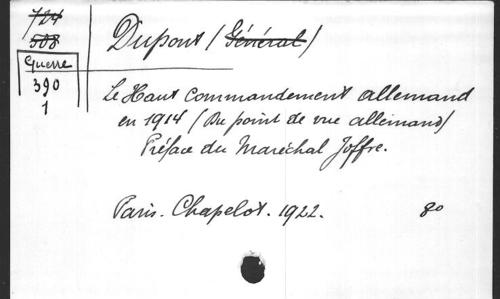 724
508
Guerre
390
1
Dupont (Général)
Le Haut Commandement allemand
en 1914 (Du point de vue allemand)
Préface du Maréchal Joffre.
Paris. Chapelot. 1922. 8o